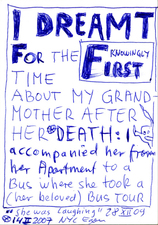 I DREAMT
KNOWINGLY
FOR THE FIRST
TIME
ABOUT MY GRAND-
MOTHER AFTER
HER DEATH: I
accompanied her from
her Apartment to a
Bus where she took a
(her beloved) BUS TOUR
"she was laughing" 28 XII 09
2007 NYC